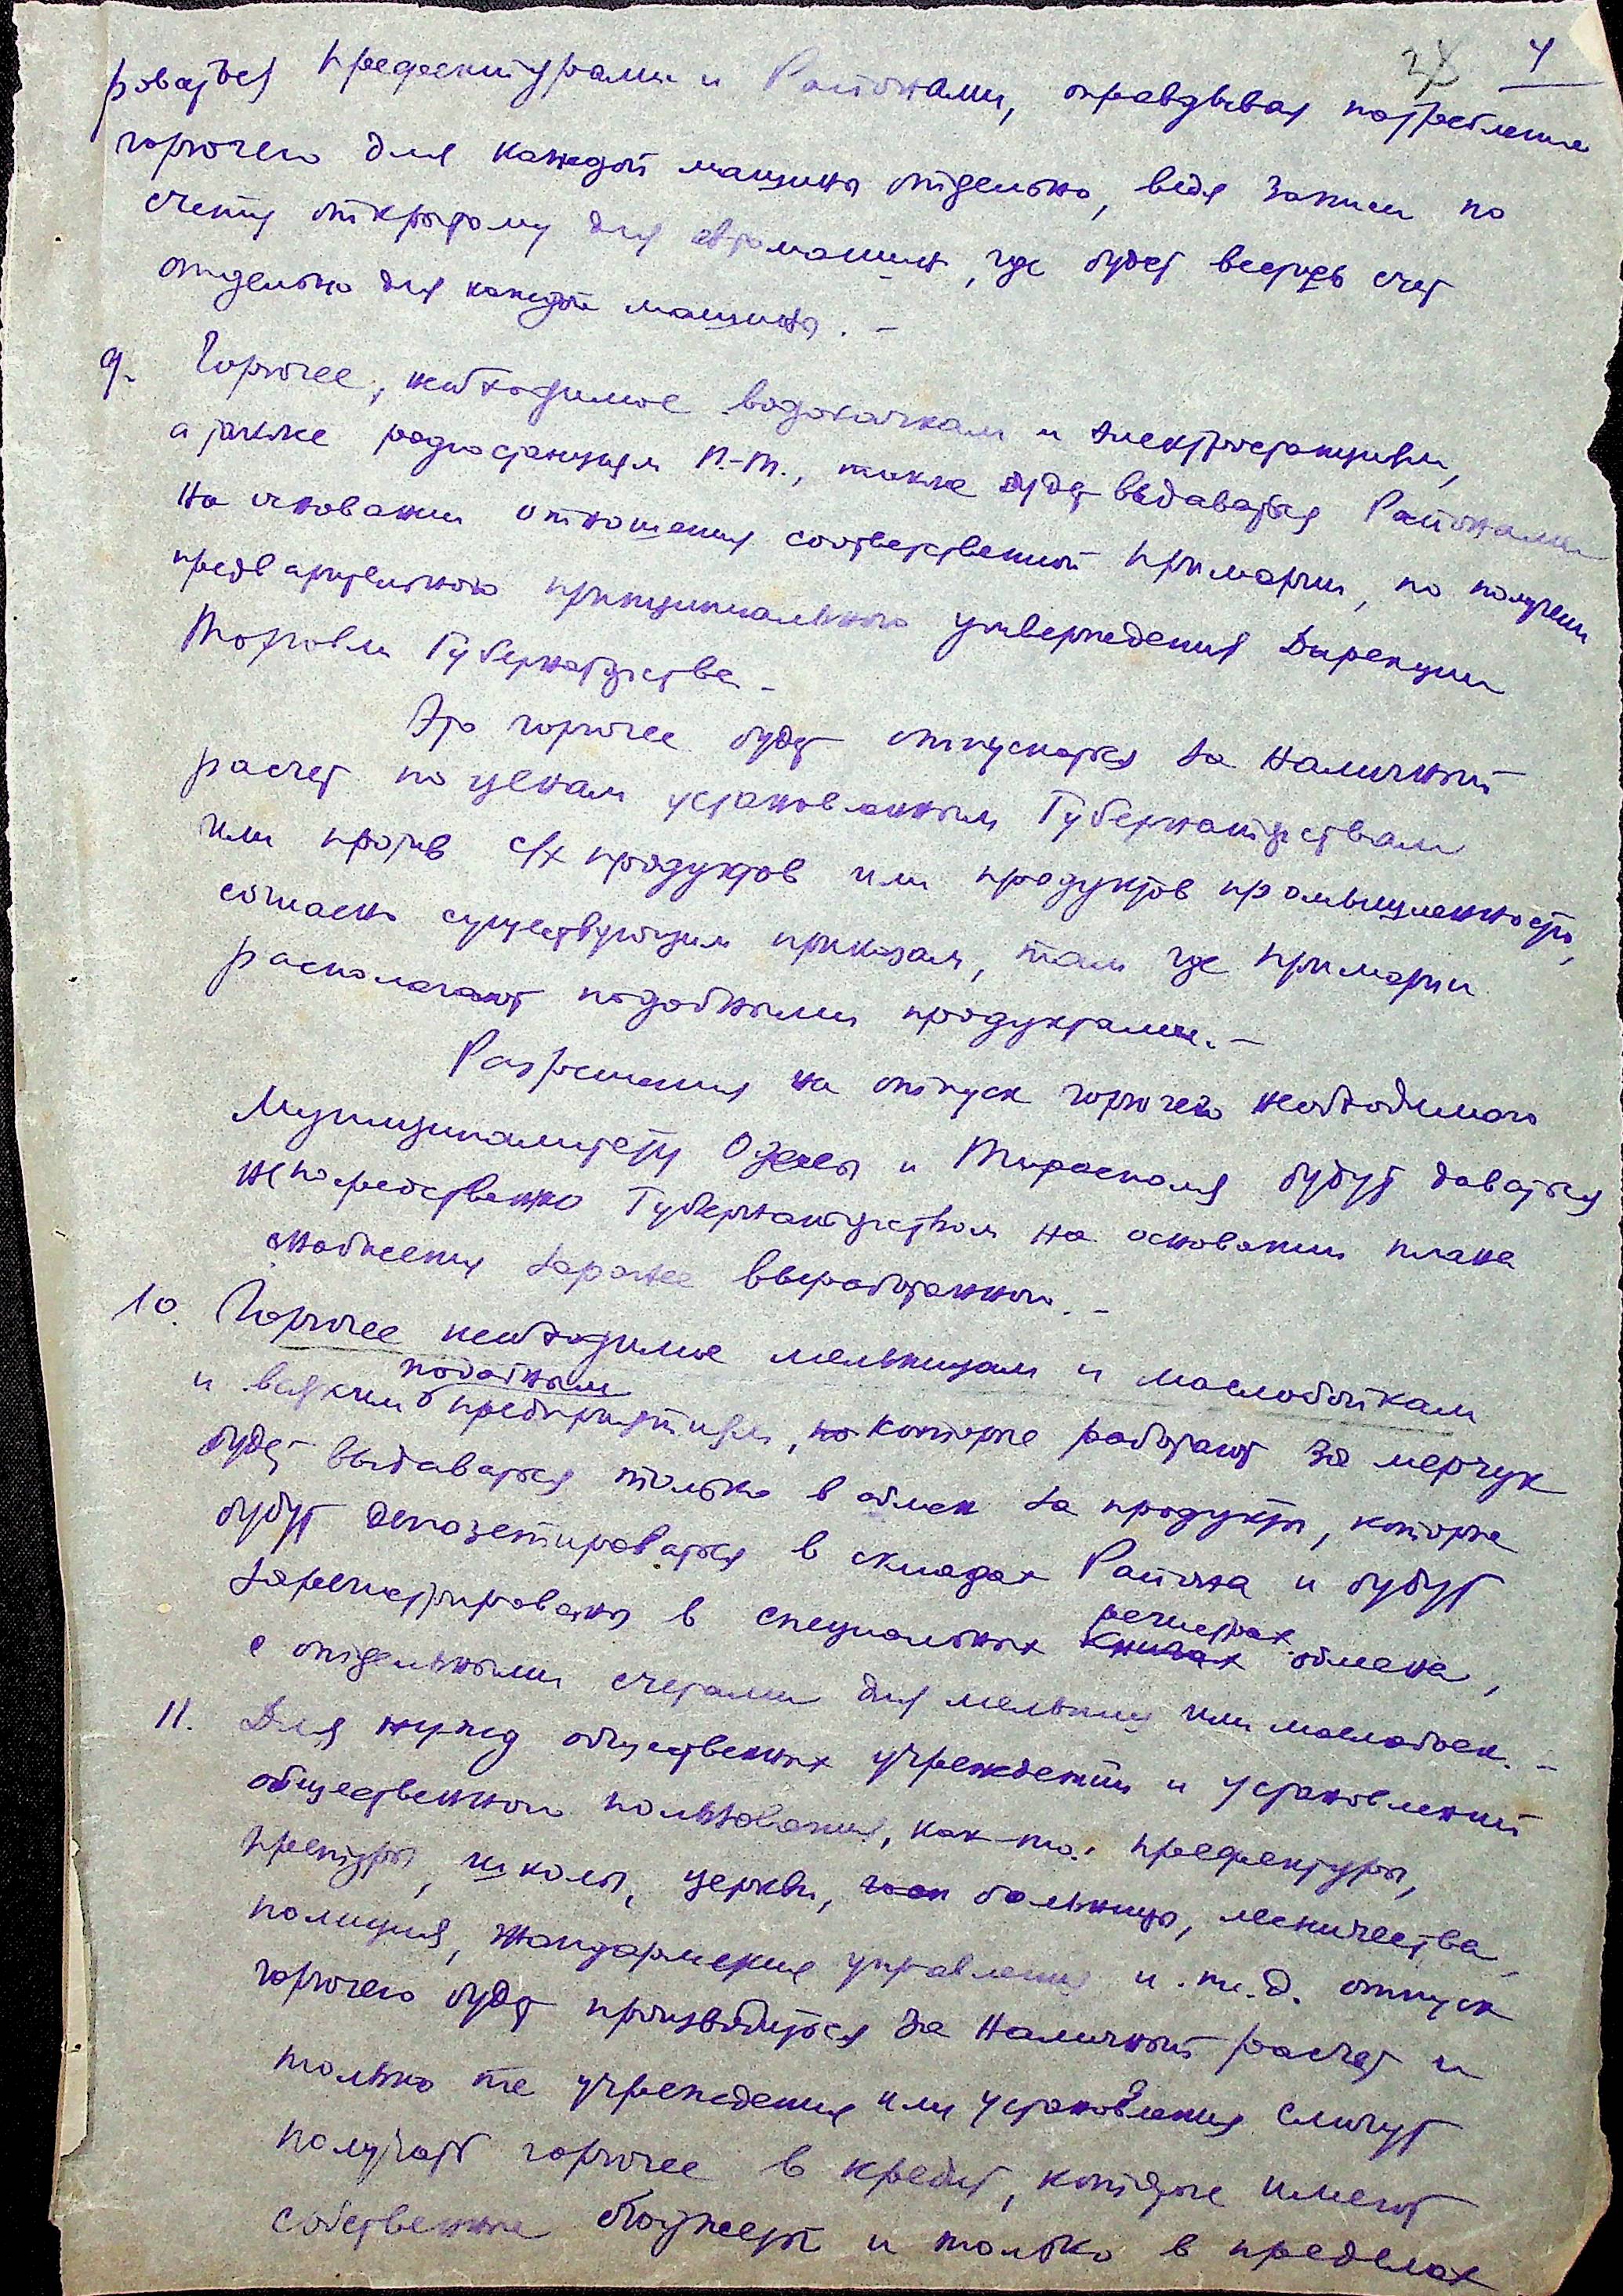 24 4
роваться Префектурами и Районами, оправдывая потребление
горючего для каждой машины отдельно, ведя записи по
счету открытому для автомашин, где будет вестись счет
отдельно для каждой машины. –
9. Горючее, необходимое водокачкам и электростанциям,
а также радиостанциям П.-Т., также будет выдаваться Районами
на основании отношения соответственной Примарии, по получении
предварительного принципиального утверждения Дирекции
Торговли Губернаторства. –
Это горючее будет отпускаться за наличный
расчет по ценам установленным Губернаторством
или против с/х продуктов или продуктов промышленности,
согласно существующим приказам, там где Примарии
располагают подобными продуктами. –
Разрешения на отпуск горючего необходимого
Муниципалитету Одессы и Тирасполя будут даваться
непосредственно Губернаторством на основании плана
снабжения заранее выработанного. –
10. Горючее необходимое мельницам и маслобойкам
подобным
и всяким предприятиям, но которые работают за мерчук
будет выдаваться только в обмен за продукты, которые
будут депозетироваться в складах Района и будут
зарегистрированы в специальных книгах обмена,
регистрах
с отдельными счетами для мельниц или маслобоек. –
11. Для нужд общественных учреждений и установлений
общественного пользования, как-то: префектуры,
претуры, школы, церкви, больницы, лесничества,
полиция, жандармския управления и.т.д. отпуск
горючего будет производиться за наличный расчет и
только те учреждения или установления смогут
получать горючее в кредит, которые имеют
собственные бюджеты и только в пределах